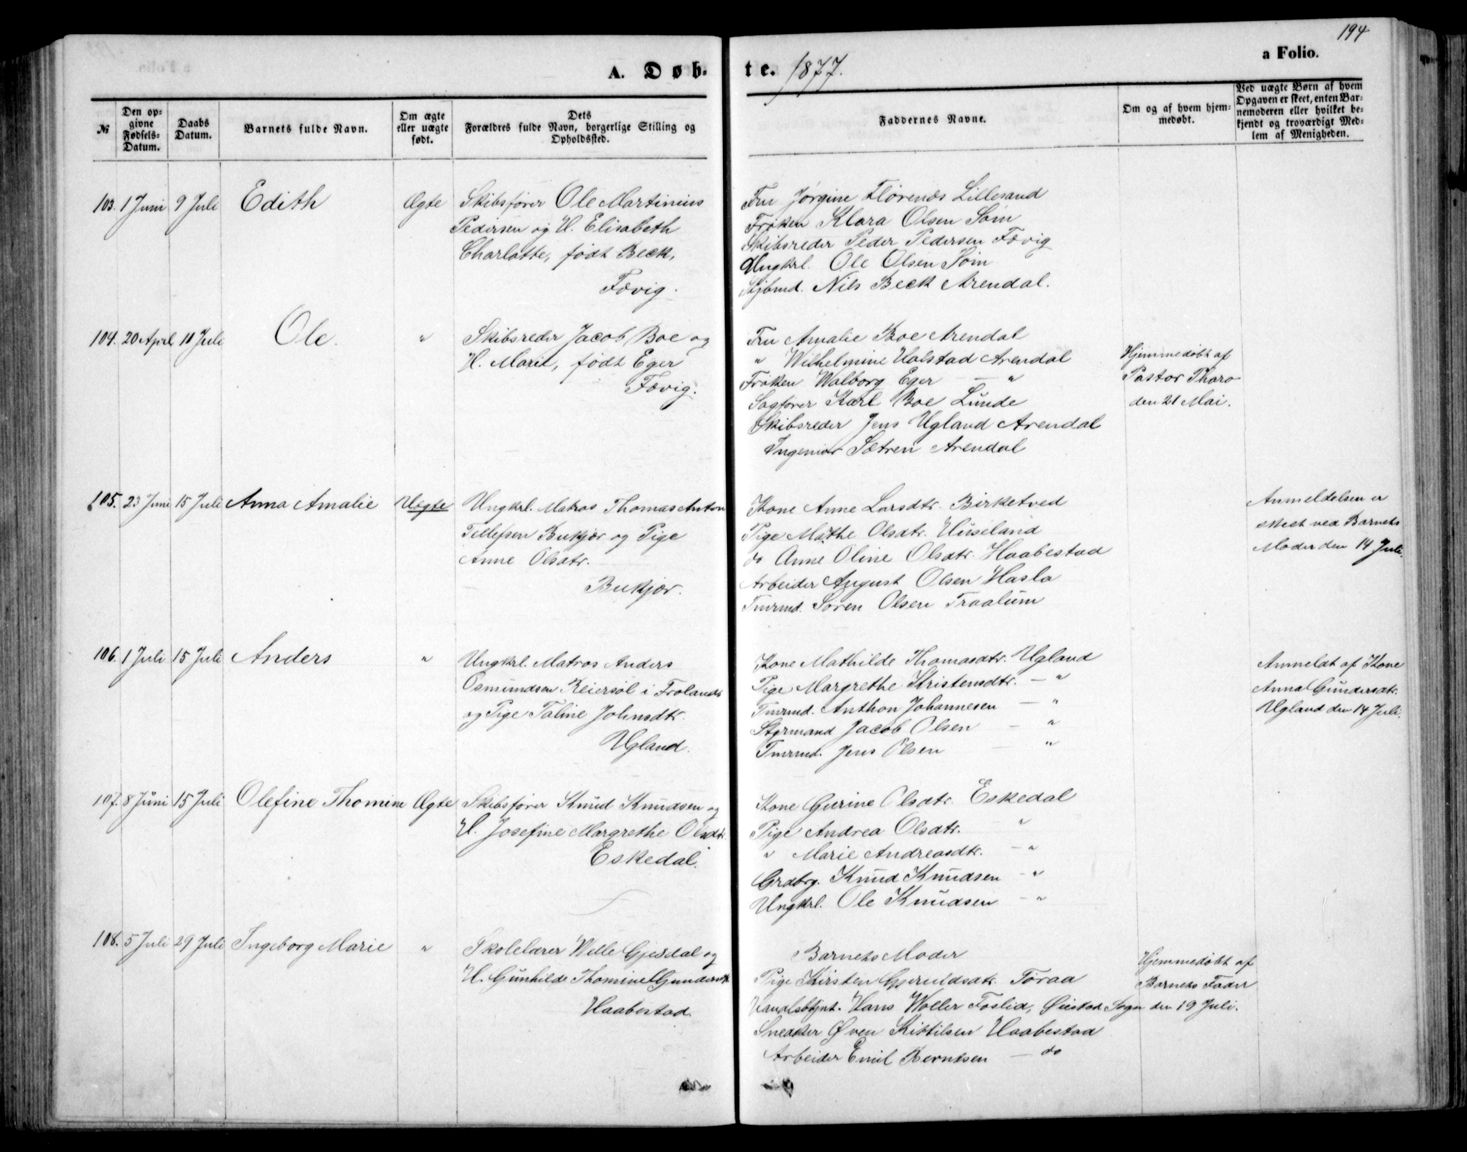 194
a Folio.
A. Døbte. 1877.
№
Den opgivne Fødsels-Datum.
Daabs Datum.
Barnets fulde Navn.
Om ægte eller uægte født.
Forældres fulde Navn, borgerlige Stilling og Dets Opholdssted.
Faddernes Navne.
Om og af hvem hjemmedøbt.
Ved uægte Børn af hvem Opgaven er skeet, enten Barnemoderen eller hvilket bekjendt og troværdigt Medlem af Menigheden.
103. 1 Juni 9 Juli Edith Ægte
Skibsfører Ole Martinius
Pedersen og H. Elisabeth
Charlotte, født Beck,
Fævig.
Fru Jørgine Florenæs Lillesand
Frøken Klara Olsen Søm
Skibsreder Peder Pedersen Fævig
Ungkrl. Ole Olsen Søm
Nils Beck Arendal.
104. 20 April 11 Juli Ole. "
Skibsreder Jacob Boe og
H. Marie, født Eger
Fævig.
Fru Amalie Boe Arendal
" Wilhelmine Ualstad Arendal
Frøken Walborg Eger — "
Sagfører Karl Boe Lunde
Skibsreder Jens Ugland Arendal
Ingeniør Sætren Arendal
Hjemmedøbt af
Pastor Tharo
den 21 Mai.
105. 23 Juni 15 Juli Anna Amalie Uægte
Ungkrl. Matros Thomas Anton
Tellefsen Bukjør og Pige
Anne Olsdtr.
Bukjør.
Kone Anne Larsdtr. Birketved
Pige Mathe Olsdtr. Huseland
do Anne Oline Olsdtr. Haabestad
Arbeider August Olsen Hasla
Tmrmd. Søren Olsen Traalum
Anmeldelsen er
skeet ved Barnets
Moder den 14 Juli.
106. 1 Juli 15 Juli Anders "
Ungkrl. Matros Anders
Osmundsen Reiersøl i Froland
og Pige Taline Johnsdtr.
Ugland.
Kone Mathilde Thomasdtr. Ugland
Pige Margrethe Kristensdtr. — "
Tmrmd. Anthon Johannesen — "
Styrmand Jacob Olsen — "
Tmrmd. Jens Olsen — "
Anmeldt af Kone
Anna Gundersdtr.
Ugland den 14 Juli.
107. 8 Juni 15 Juli Olefine Thomine Ægte
Skibsfører Knud Knudsen og
H. Josefine Margrethe Olsdtr.
Eskedal.
Kone Gurine Olsdtr. Eskedal
Pige Andrea Olsdtr. "
" Marie Andreasdtr. — "
Grdbrg. Knud Knudsen — "
Ungkrl. Ole Knudsen — "
108. 5 Juli 29 Juli Ingeborg Marie "
Skolelærer Welle Gjerdal og
H. Gunhilde Thomine Gundersdtr
Haabestad
Barnets Moder
Pige Kirsten Gjeruldsdtr. Toraa
Handelsbtjnt. Hans Woller Foslid, Øiestad Sogn
Snedker Øven Kittilsen Haabestad
Arbeider Emil Berntsen — do
Hjemmedøbt af
Barnets Fader
den 19 Juli.